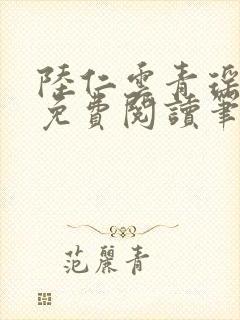 陸仁雲青瑤
免費閱讀筆
范麗青